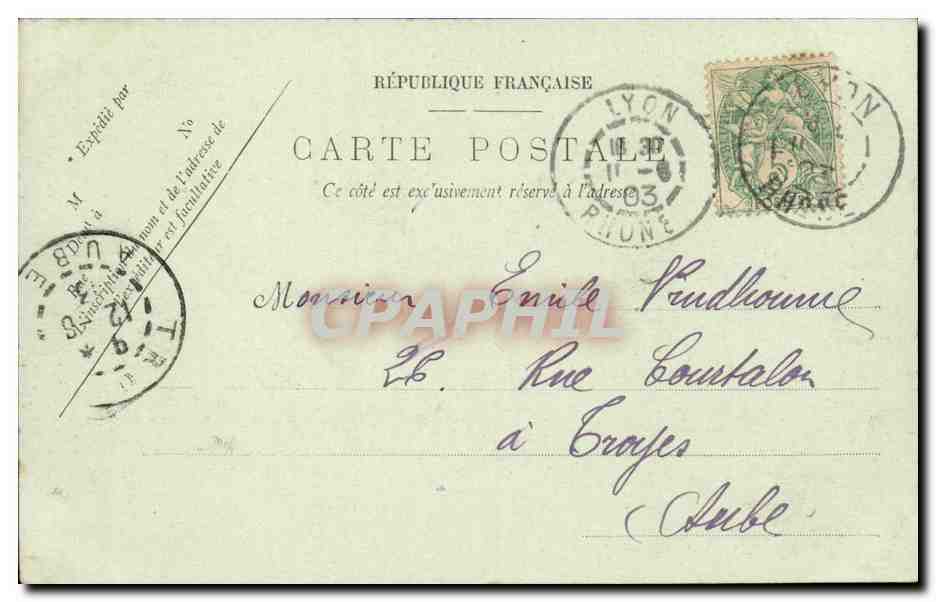 RÉPUBLIQUE FRANÇAISE
CARTE POSTALE
Ce côté est exclusivement réservé à l'adresse
Expédié par
M
No
Rue
L'inscription du nom et de l'adresse de
l'expéditeur est facultative
LYON
11 -6
03
RHONE
LYON
RHONE
AUBE
Monsieur Emile Prudhomme
26. Rue Courtalon
à Troyes
(Aube
CPAPHIL